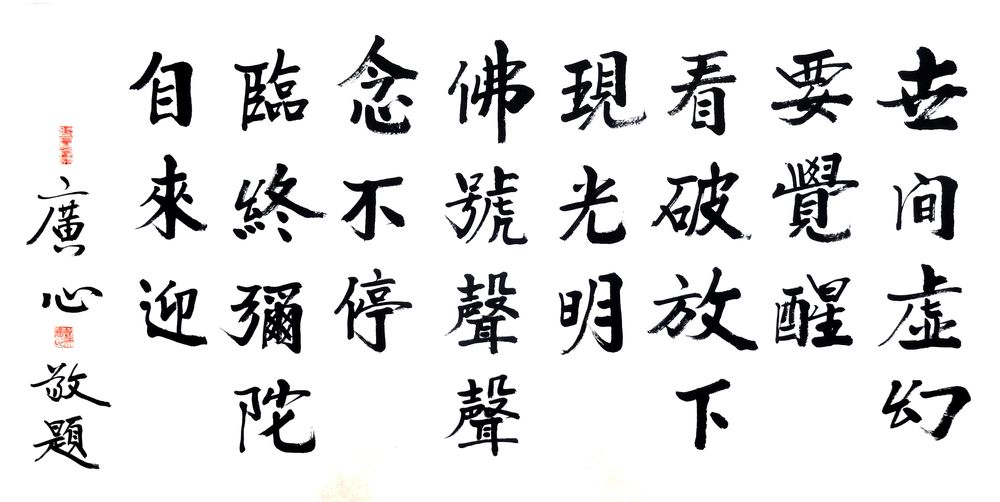 世间虚幻
要覺醒
看破放下
現光明
佛號聲聲
念不停
臨終彌陀
自來迎
廣心敬題